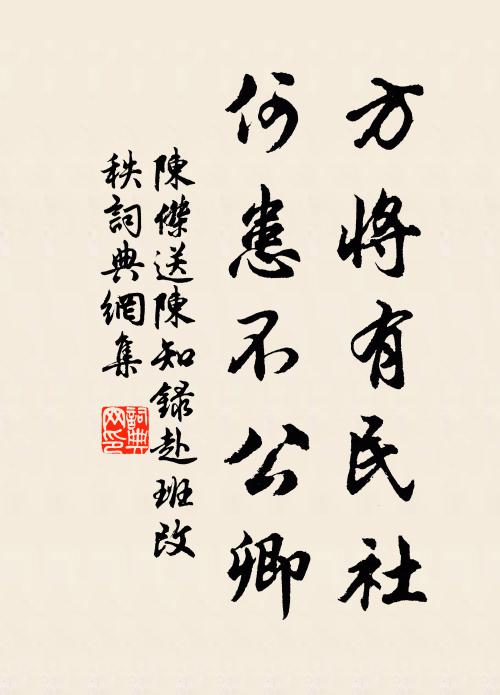 方將有民社
何患不公卿
陳傑送陳知録赴班改
秩詞典網集
詞典網印